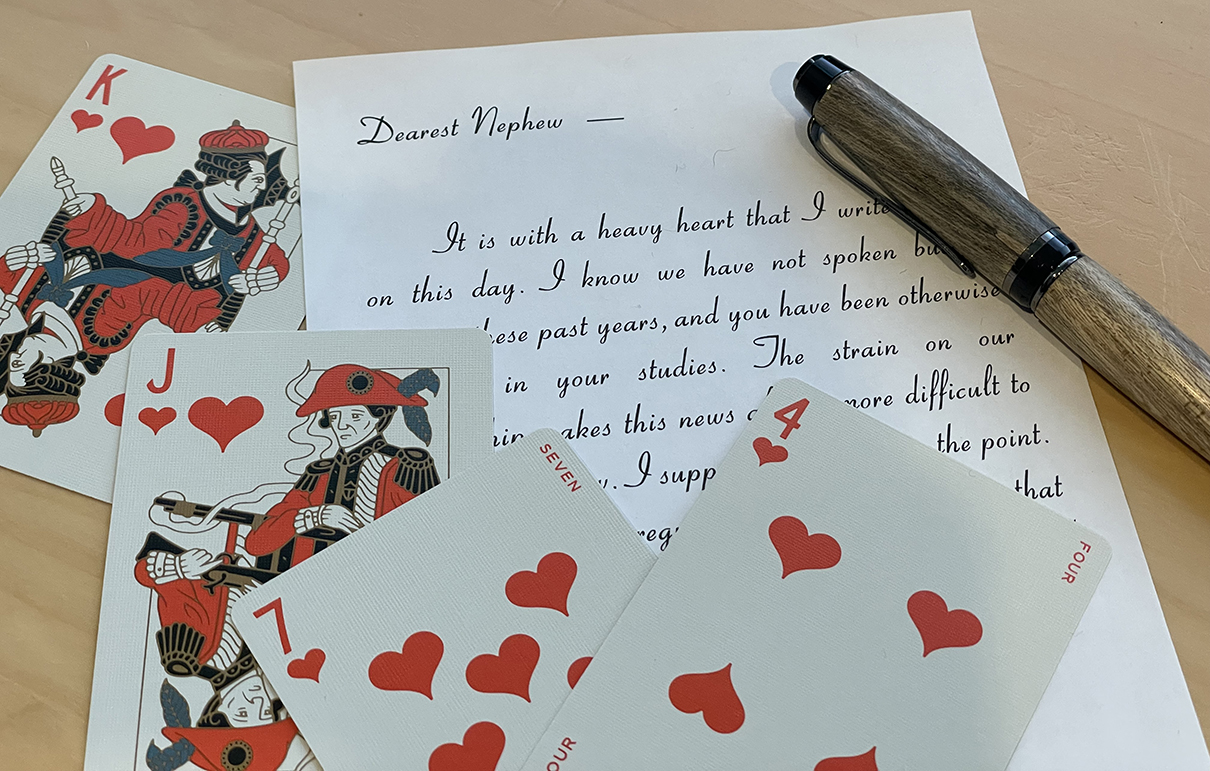 K
Dearest Nephew —
It is with a heavy heart that I write
on this day. I know we have not spoken
past years, and you have been otherwise
in your studies. The strain on our
this news more difficult to
the point.
I
that
J
SEVEN
7
4
FOUR